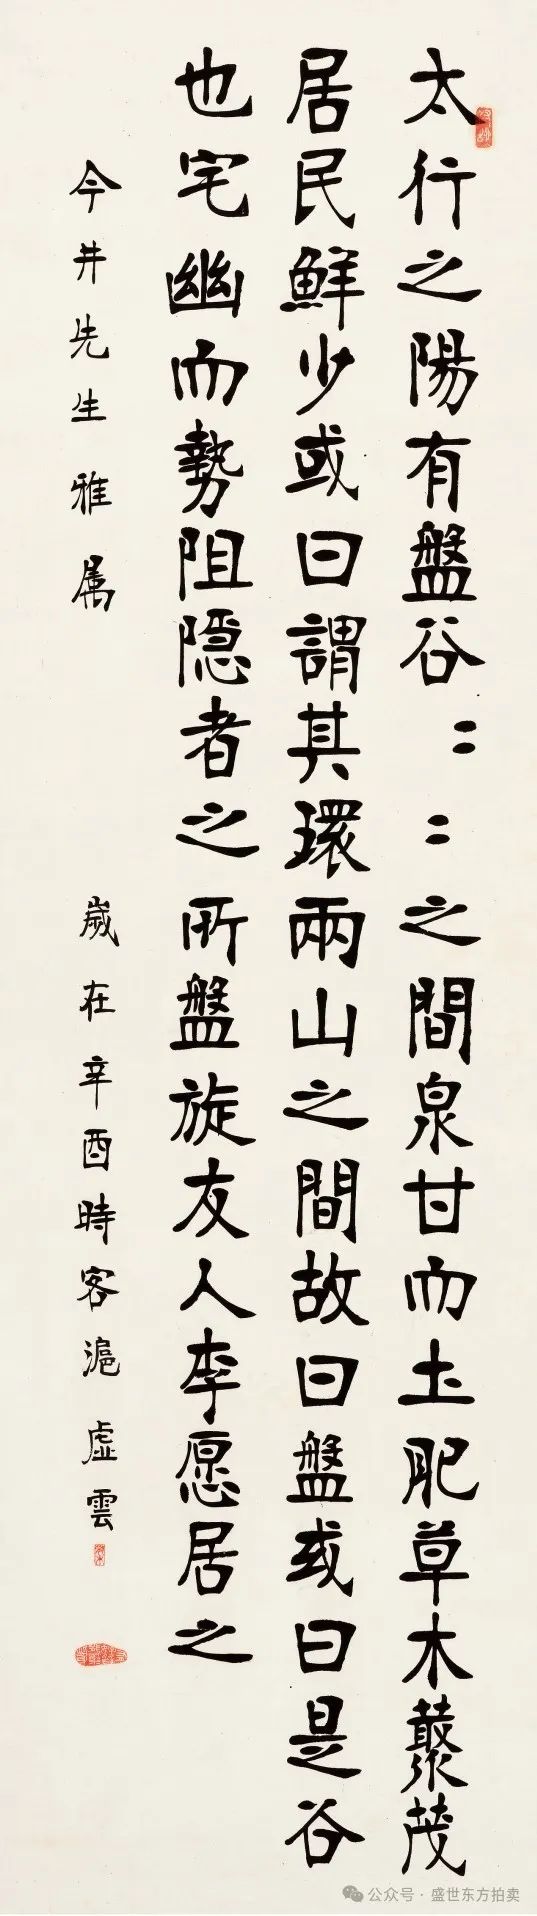 太行之陽有盤谷〻〻之間泉甘而土肥草木藂茂
居民鮮少或曰謂其環兩山之間故曰盤或曰是谷
也宅幽而勢阻隱者之所盤旋友人李愿居之
今井先生雅属
歲在辛酉時客滬虛雲
公众号·盛世东方拍卖